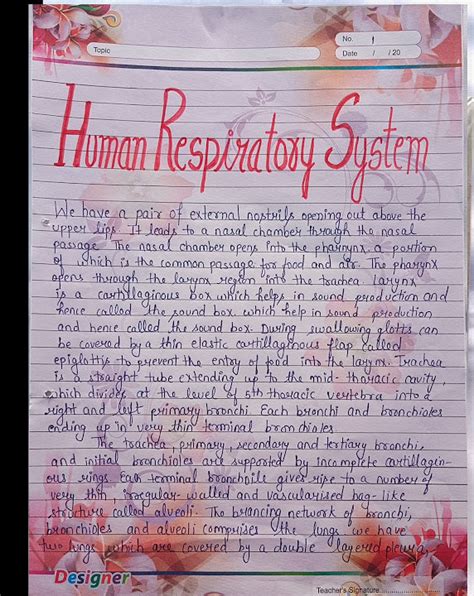 No. 1
Topic
Date / / 20
Human Respiratory System
We have a pair of external nostrils opening out above the
upper lips. It leads to a nasal chamber through the nasal
passage. The nasal chamber opens into the pharynx, a portion
of which is the common passage for food and air. The pharynx
opens through the larynx region into the trachea larynx
is a cartilaginous box which helps in sound production and
hence called the sound box. which help in sound production
and hence called the sound box. During swallowing glotts can
be covered by a thin elastic cartillaginous flap called
epiglottis to prevent the entry of food into the larynx. Trachea
is a straight tube extending up to the mid-thoracic cavity,
which divides at the level of 5th thoracic vertebra into a
right and left primary bronchi. Each bronchi and bronchioles
ending up in very thin terminal bronchioles.
The trachea, primary, secondary and tertiary bronchi,
and initial bronchioles are supported by incomplete cartillagin-
ous rings. Each terminal bronchoils gives rise to a number of
very thin, irregular-walled and vascularised bag-like
structure called alveoli. The brancing network of bronchi,
bronchioles and alveoli comprises the lungs. we have
two lungs which are covered by a double layered pleura,
Designer
Teacher's Signature